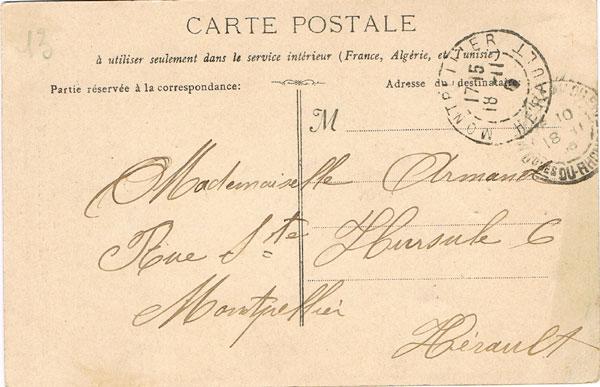 13
CARTE POSTALE
à utiliser seulement dans le service intérieur (France, Algérie, et Tunisie)
Partie réservée à la correspondance:
Adresse du destinataire
M
Mademoiselle Armand
Rue Ste Hursule 6
Montpellier
Hérault
MONTPELLIER HERAULT
17 15
18 -11
10
18 -11
DU-RHÔNE